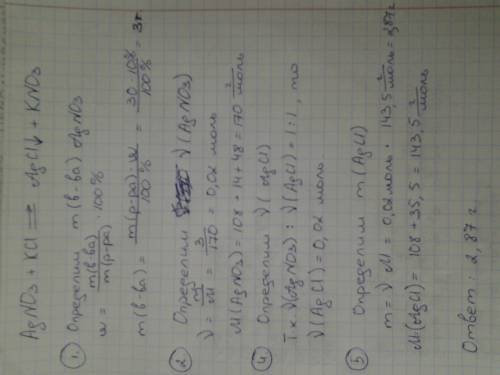 AgNO3 + KCl ⇌ AgCl↓ + KNO3
① Определим m(в-ва) AgNO3
w = m(в-ва) / m(р-ра) · 100%
m(в-ва) = m(р-ра)·w / 100% = 30·10% / 100% = 3г.
② Определим ν(AgNO3)
ν = m / M = 3 / 170 = 0,02 моль
M(AgNO3) = 108 + 14 + 48 = 170 г/моль
④ Определим ν(AgCl)
Т.к ν(AgNO3) : ν(AgCl) = 1:1, то
ν(AgCl) = 0,02 моль
⑤ Определим m(AgCl)
m = ν·M = 0,02 моль · 143,5 г/моль = 2,87г
M(AgCl) = 108 + 35,5 = 143,5 г/моль
Ответ: 2,87 г